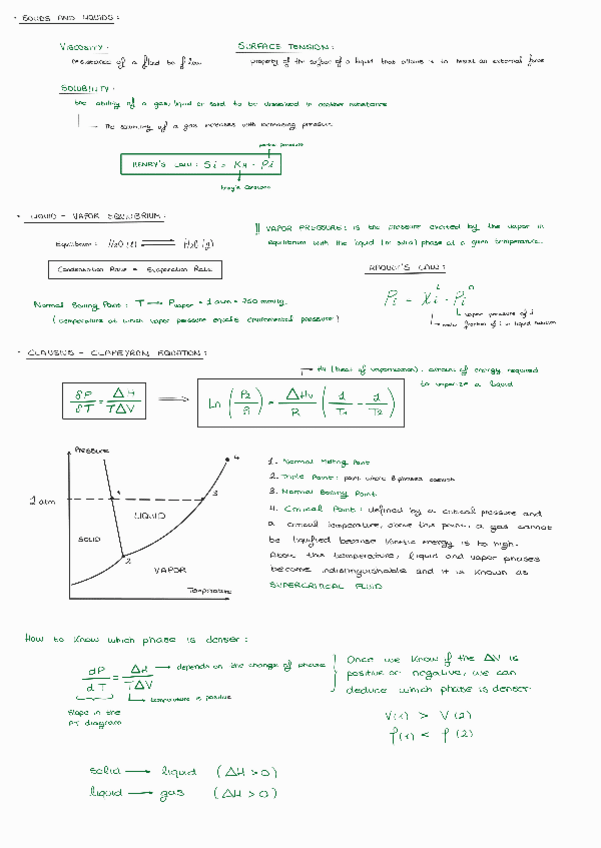 · SOLIDS AND LIQUIDS:
VISCOSITY:
resistance of a fluid to flow
SURFACE TENSION:
property of the surface of a liquid that allows it to resist an external force
SOLUBILITY:
the ability of a gas, liquid or solid to be dissolved in another substance
→ the solubility of a gas increases with increasing pressure
partial pressure
HENRY'S LAW: Si = KH · Pi
Henry's constant
· LIQUID - VAPOR EQUILIBRIUM:
Equilibrium: H2O (l) ⇌ H2O (g)
Condensation Rate = Evaporation Rate
!! VAPOR PRESSURE: is the pressure exerted by the vapor in
equilibrium with the liquid (or solid) phase at a given temperature.
Normal Boiling Point: T → Pvapor = 1 atm = 760 mmHg.
(temperature at which vapor pressure equals environmental pressure)
RAOULT'S LAW:
Pi = Xi · Pi
vapor pressure of i
molar fraction of i in liquid
· CLAUSIUS - CLAPEYRON EQUATION:
ΔH (heat of vaporization), amount of energy required
to vaporize a liquid
δP/δT = ΔH/TΔV ⟹ Ln (P2/P1) = ΔHv/R (1/T1 - 1/T2)
Pressure
1 atm
1
2
3
4
SOLID
LIQUID
VAPOR
Temperature
1. Normal Melting Point
2. Triple Point: point where 3 phases coexist
3. Normal Boiling Point
4. Critical Point: defined by a critical pressure and
a critical temperature, above this point, a gas cannot
be liquified because kinetic energy is to high.
Above this temperature, liquid and vapor phases
become indistinguishable and it is known as
SUPERCRITICAL FLUID
How to know which phase is denser:
dP/dT = ΔH/TΔV
→ depends on the change of phase
→ temperature is positive
slope in the
PT diagram
Once we know if the ΔV is
positive or negative, we can
deduce which phase is denser.
V(1) > V(2)
ρ(1) < ρ(2)
solid → liquid (ΔH > 0)
liquid → gas (ΔH > 0)